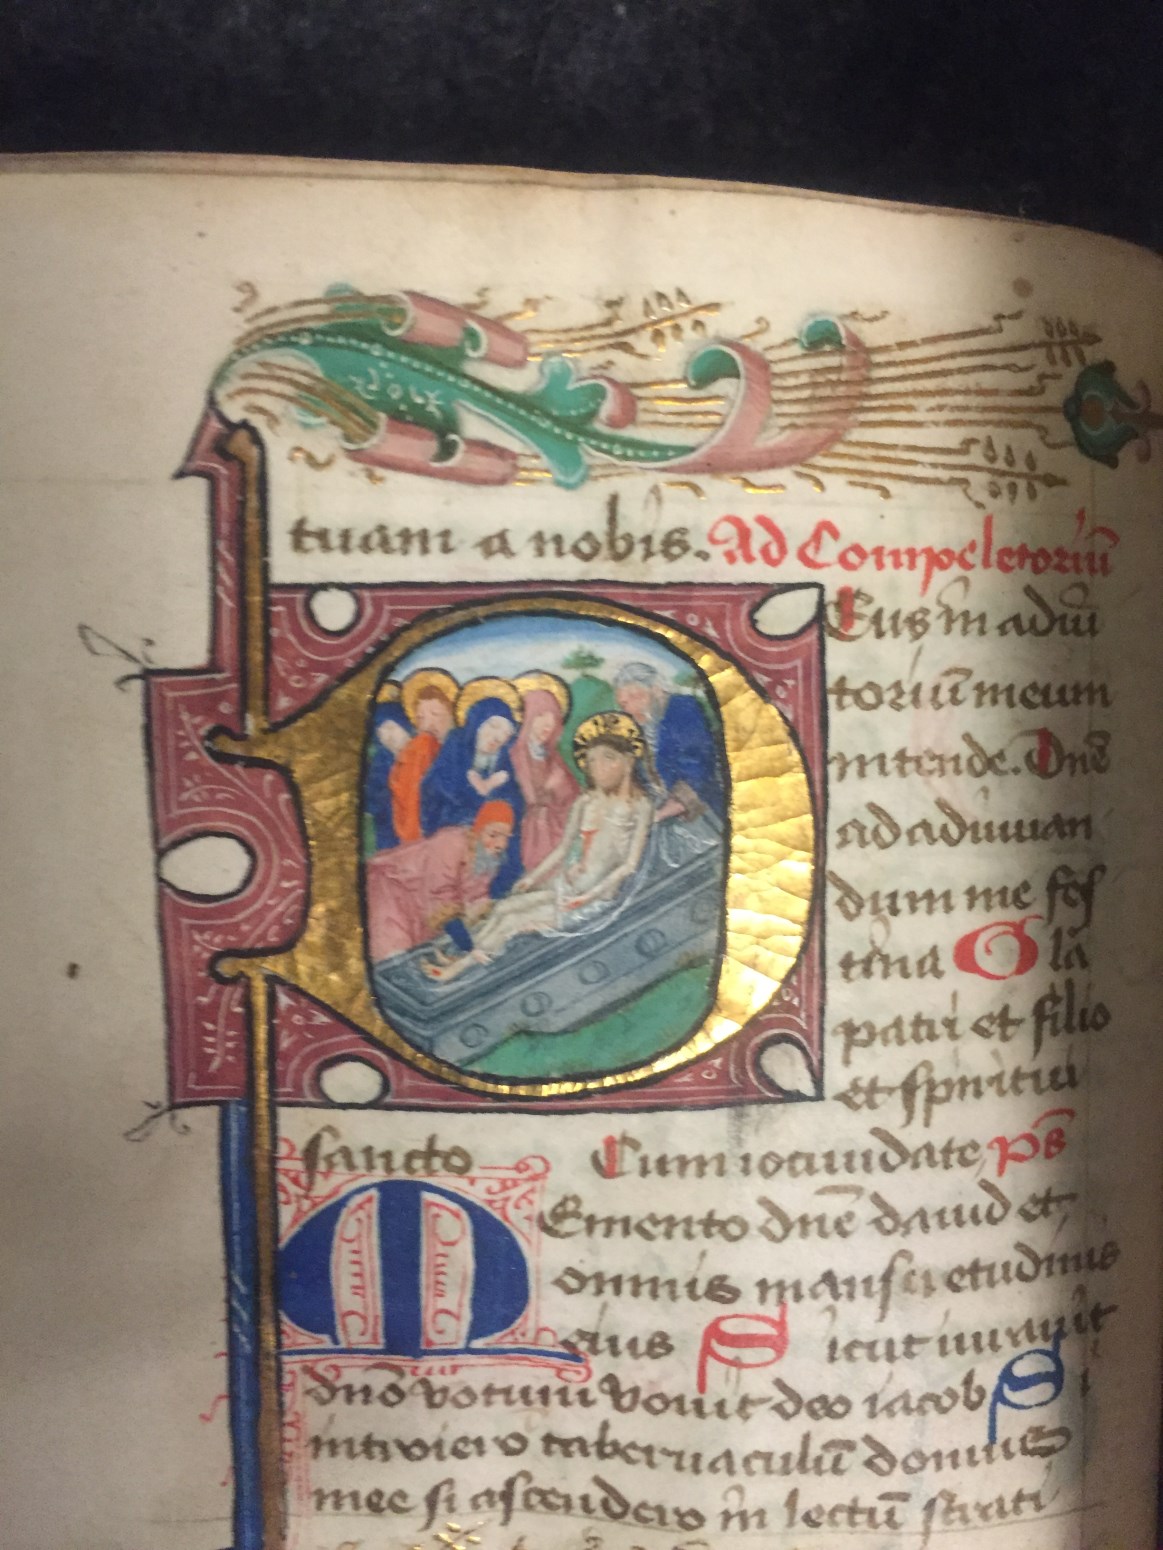 tuam a nobis. Ad Completoriū
Deus in adiu
toriū meum
intende. Dne
ad adiuuan
dum me fes
tina Gla
patri et filio
et spiritui
sancto Cum iocunditate ps
Memento dnē dauid et
omnis mansuetudinis
eius Sicut iurauit
dnō votum vouit deo iacob Si
introiero tabernaculū domus
mee si ascendero in lectū strati